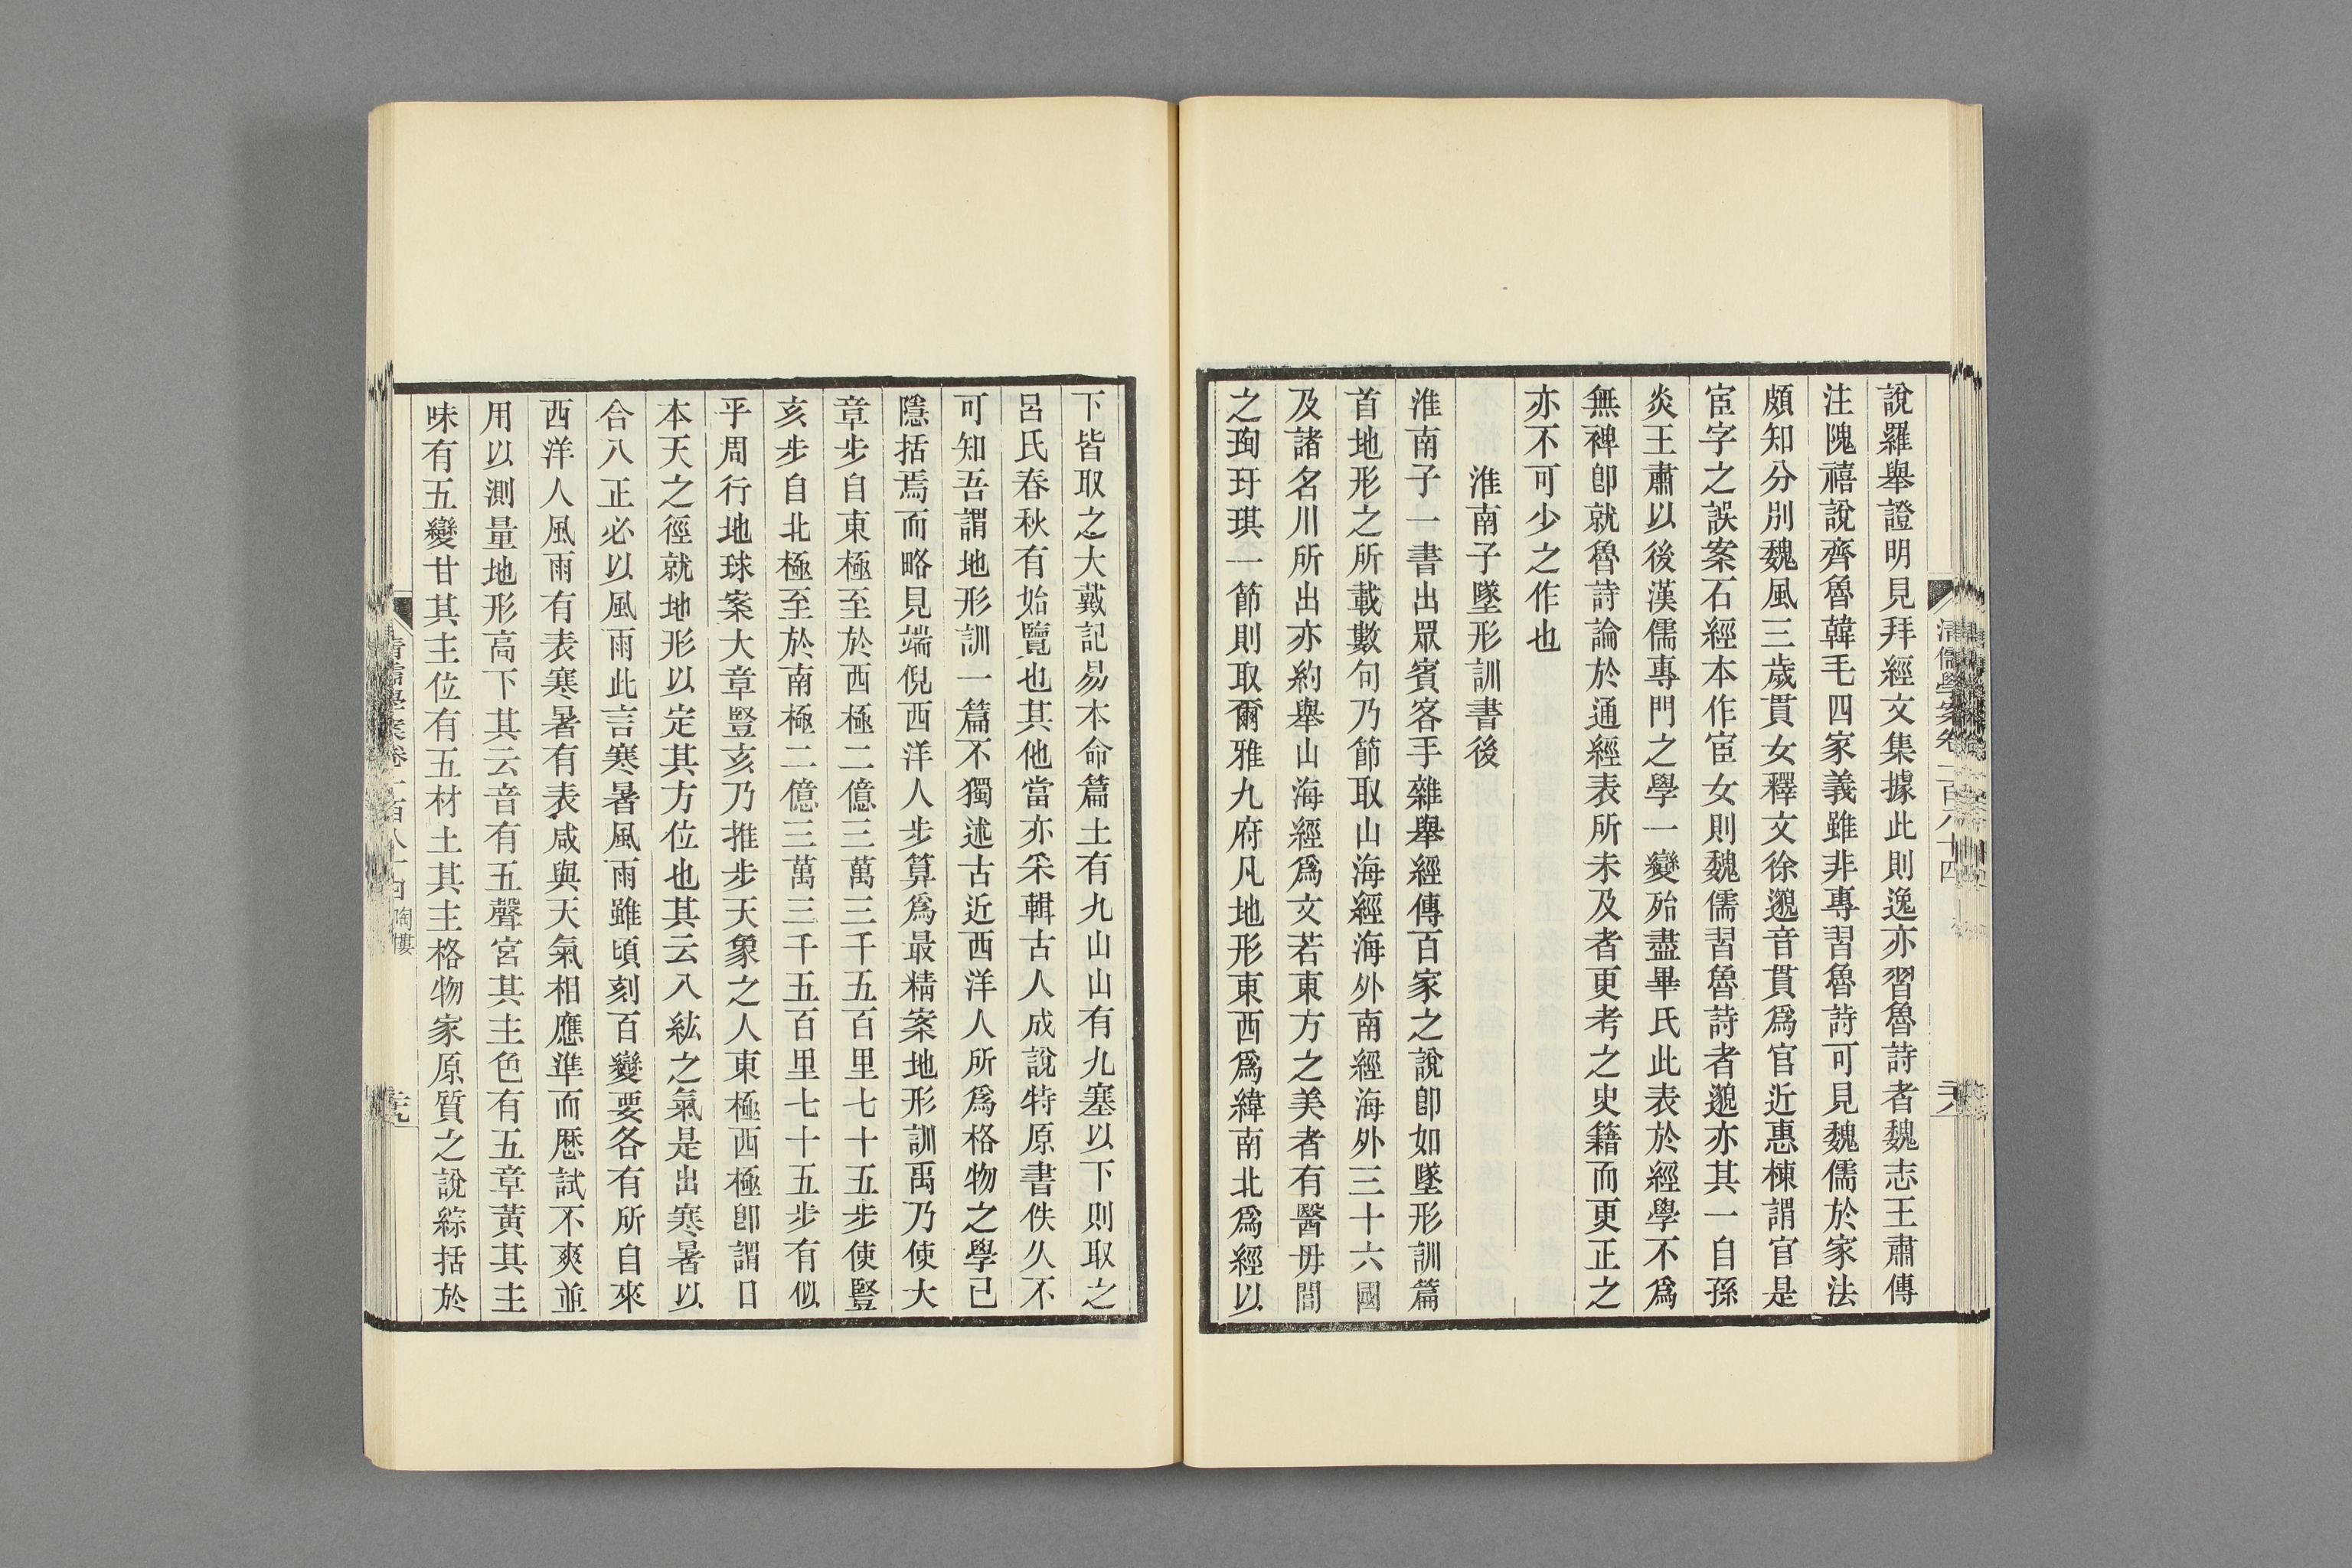 說羅舉證明見拜經文集據此則逸亦習魯詩者魏志王肅傳
注隗禧說齊魯韓毛四家義雖非專習魯詩可見魏儒於家法
頗知分別魏風三歲貫女釋文徐邈音貫爲官近惠棟謂官是
宦字之誤案石經本作宦女則魏儒習魯詩者邈亦其一自孫
炎王肅以後漢儒專門之學一變殆盡畢氏此表於經學不爲
無裨卽就魯詩論於通經表所未及者更考之史籍而更正之
亦不可少之作也
淮南子墬形訓書後
淮南子一書出眾賓客手雜舉經傳百家之說卽如墬形訓篇
首地形之所載數句乃節取山海經海外南經海外三十六國
及諸名川所出亦約舉山海經爲文若東方之美者有醫毋閭
之珣玗琪一節則取爾雅九府凡地形東西爲緯南北爲經以
清儒學案卷一百八十四
下皆取之大戴記易本命篇土有九山山有九塞以下則取之
呂氏春秋有始覽也其他當亦采輯古人成說特原書佚久不
可知吾謂地形訓一篇不獨述古近西洋人所爲格物之學已
隱括焉而略見端倪西洋人步算爲最精案地形訓禹乃使大
章步自東極至於西極二億三萬三千五百里七十五步使豎
亥步自北極至於南極二億三萬三千五百里七十五步有似
乎周行地球案大章豎亥乃推步天象之人東極西極卽謂日
本天之徑就地形以定其方位也其云八紘之氣是出寒暑以
合八正必以風雨此言寒暑風雨雖頃刻百變要各有所自來
西洋人風雨有表寒暑有表咸與天氣相應準而歷試不爽並
用以測量地形高下其云音有五聲宮其主色有五章黃其主
味有五變甘其主位有五材土其主格物家原質之說綜括於
清儒學案卷一百八十四 陶樓